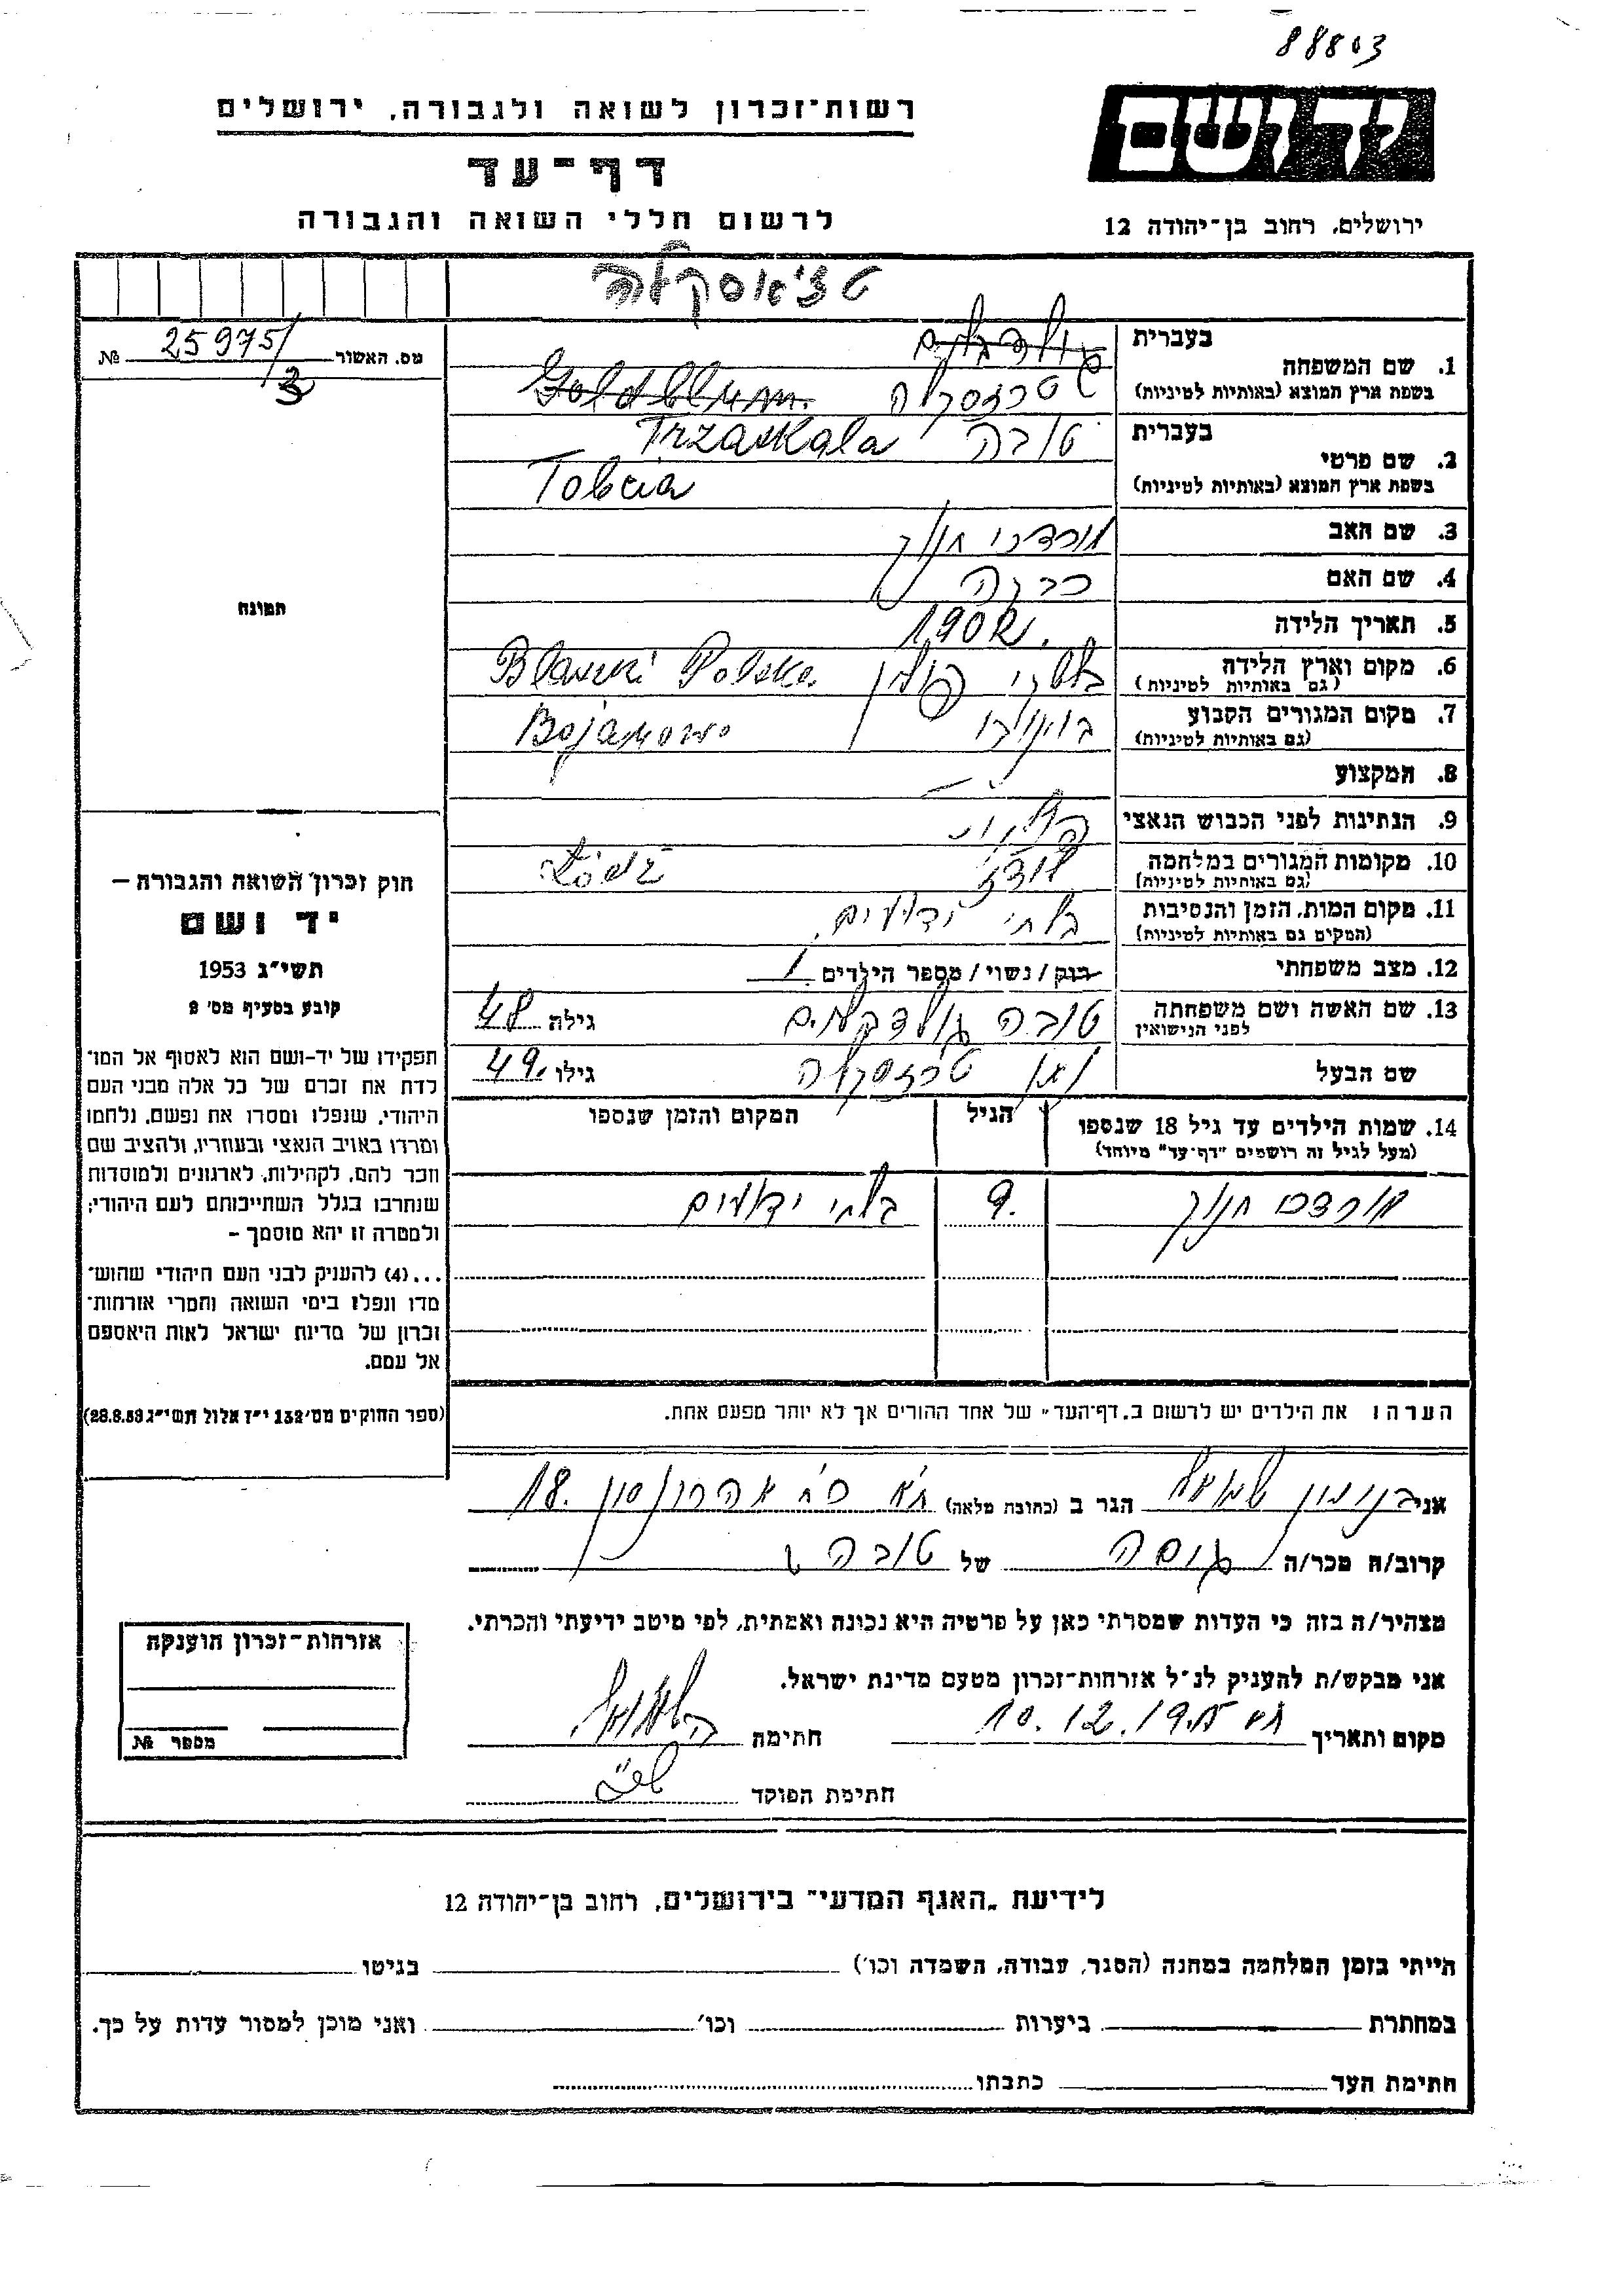 88803
רשות־זכרון לשואה ולגבורה, ירושלים
יד ושם
דף־עד
לרשום חללי השואה והגבורה
ירושלים, רחוב בן־יהודה 12
מס. האשור 25975/3 №
בעברית
1. שם המשפחה גולדבלום
בשפת ארץ המוצא (באותיות לטיניות) Goldblum
בעברית טובה Trzaskala
2. שם פרטי
בשפת ארץ המוצא (באותיות לטיניות) Tobcia
3. שם האב מרדכי חנוך
4. שם האם
5. תאריך הלידה 1902
6. מקום וארץ הלידה פולין Blaszki Polska
(גם באותיות לטיניות)
7. מקום המגורים הקבוע Bojanowo
(גם באותיות לטיניות)
8. המקצוע —
9. הנתינות לפני הכבוש הנאצי פולנית
10. מקומות המגורים במלחמה לודז Łódź
(גם באותיות לטיניות)
11. מקום המות, הזמן והנסיבות בלתי ידועים
(המקום גם באותיות לטיניות)
12. מצב משפחתי רווק / נשוי / מספר הילדים 1
13. שם האשה ושם משפחתה טובה גולדבלום גילה 48
לפני הנישואין
שם הבעל טרזסקלה גילו 49
14. שמות הילדים עד גיל 18 שנספו הגיל המקום והזמן שנספו
(מעל לגיל זה רושמים "דף־עד" מיוחד)
מרדכי חנוך 9. בלתי ידועים
הערה: את הילדים יש לרשום ב„דף־העד" של אחד ההורים אך לא יותר מפעם אחת.
תמונה
חוק זכרון השואה והגבורה –
יד ושם
תשי״ג 1953
קובע בסעיף מס׳ 2
תפקידו של יד-ושם הוא לאסוף אל המו־
לדת את זכרם של כל אלה מבני העם
היהודי, שנפלו ומסרו את נפשם, נלחמו
ומרדו באויב הנאצי ובעוזריו, ולהציב שם
וזכר להם, לקהילות, לארגונים ולמוסדות
שנחרבו בגלל השתייכותם לעם היהודי;
ולמטרה זו יהא מוסמך –
...(4) להעניק לבני העם היהודי שהוש־
מדו ונפלו בימי השואה והמרי אזרחות־
זכרון של מדינת ישראל לאות היאספם
אל עמם.
(ספר החוקים מס׳ 132 י״ז אלול תשי״ג 28.8.53)
אני הגר ב (כתובת מלאה) ת״א 18.
קרוב/ה מכר/ה גיסה של טובה
מצהיר/ה בזה כי העדות שמסרתי כאן על פרטיה היא נכונה ואמתית, לפי מיטב ידיעתי והכרתי.
אני מבקש/ת להעניק לנ״ל אזרחות־זכרון מטעם מדינת ישראל.
מקום ותאריך חתימה
חתימת הפוקד
אזרחות־זכרון הוענקה
מספר №
לידיעת „האגף המדעי" בירושלים, רחוב בן־יהודה 12
הייתי בזמן המלחמה במחנה (הסגר, עבודה, השמדה וכו׳) בגיטו
במחתרת ביערות וכו׳ ואני מוכן למסור עדות על כך.
חתימת העד כתבתו